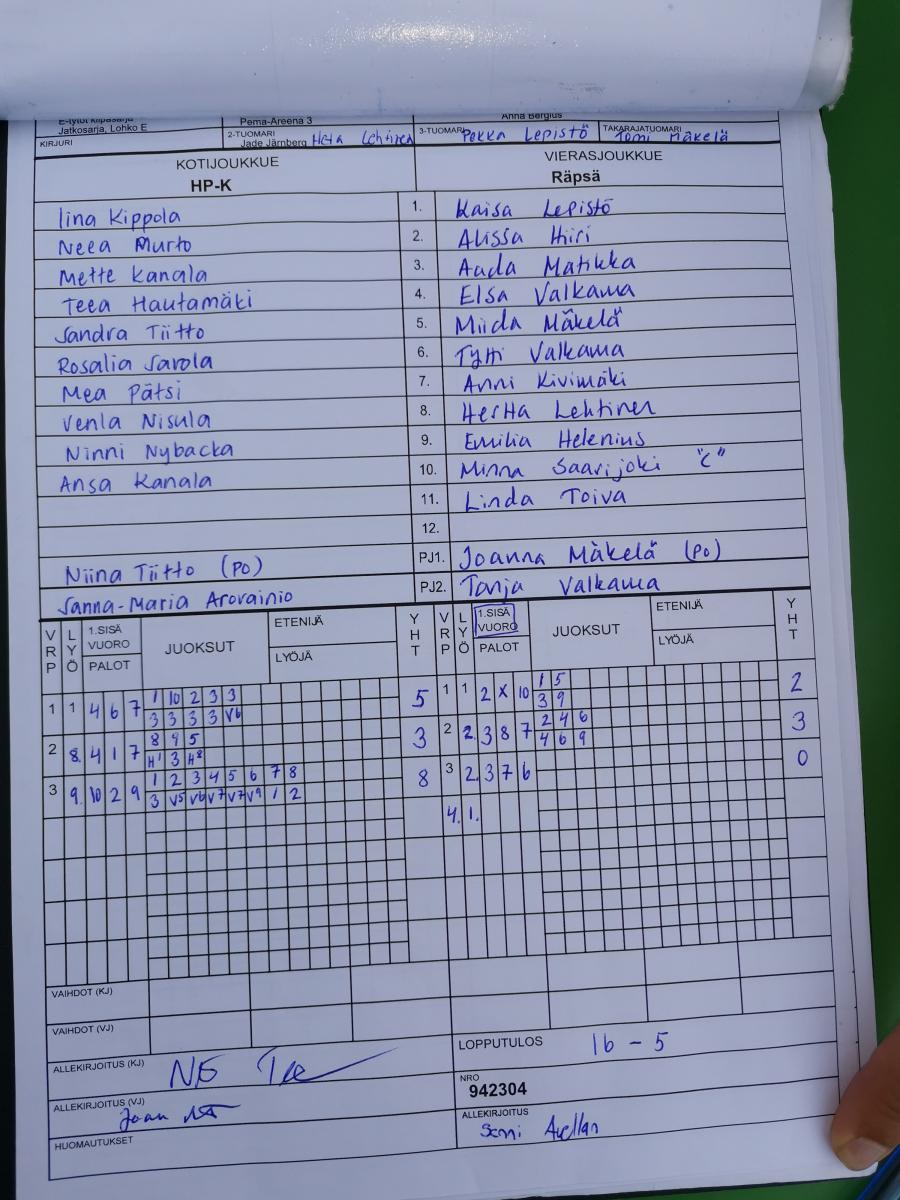 E-tytöt kilpasarja
Jatkosarja, Lohko E
Pema-Areena 3
Anna Bergius
KIRJURI
2-TUOMARI
Jade Järnberg Heta Lehtinen
3-TUOMARI Pekka Lepistö
TAKARAJATUOMARI
Tomi Mäkelä
KOTIJOUKKUE
HP-K
VIERASJOUKKUE
Räpsä
Iina Kippola 1. Kaisa Lepistö
Neea Murto 2. Alissa Hiiri
Mette Kangla 3. Aada Matikka
Teea Hautamäki 4. Elsa Valkama
Sandra Tiitto 5. Miida Mäkelä
Rosalia Sarola 6. Tytti Valkama
Mea Pätsi 7. Anni Kivimäki
Venla Nisula 8. Hertta Lehtinen
Ninni Nybacka 9. Emilia Helenius
Ansa Kangla 10. Minna Saarijoki "C"
11. Linda Toiva
12.
Niina Tiitto (po) PJ1. Joanna Mäkelä (po)
Sanna-Maria Arovainio PJ2. Tanja Valkama
VRP LYÖ 1.SISÄ VUORO PALOT JUOKSUT ETENIJÄ LYÖJÄ YHT VRP LYÖ 1.SISÄ VUORO PALOT JUOKSUT ETENIJÄ LYÖJÄ YHT
1 1 4 6 7 1 10 2 3 3 5 1 1 2 X 10 1 5 2
3 3 3 3 V6 3 9
2 8. 4 1 7 8 9 5 3 2 2. 3 8 7 2 4 6 3
H1 3 H8 4 6 9
3 9. 10 2 9 1 2 3 4 5 6 7 8 8 3 2. 3 7 6 0
3 V5 V6 V7 V7 V9 1 2
4. 1.
VAIHDOT (KJ)
VAIHDOT (VJ)
ALLEKIRJOITUS (KJ)
LOPPUTULOS 16 - 5
ALLEKIRJOITUS (VJ)
NRO
942304
HUOMAUTUKSET
ALLEKIRJOITUS